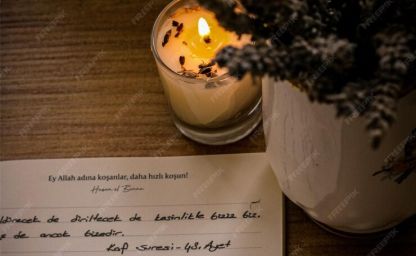 Ey Allah adına koşanlar, daha hızlı koşun!
Hasan el Benna
diriltecek de kesinlikle bizz biz.
de ancak bizedir.
Kaf suresi - 43. Ayet